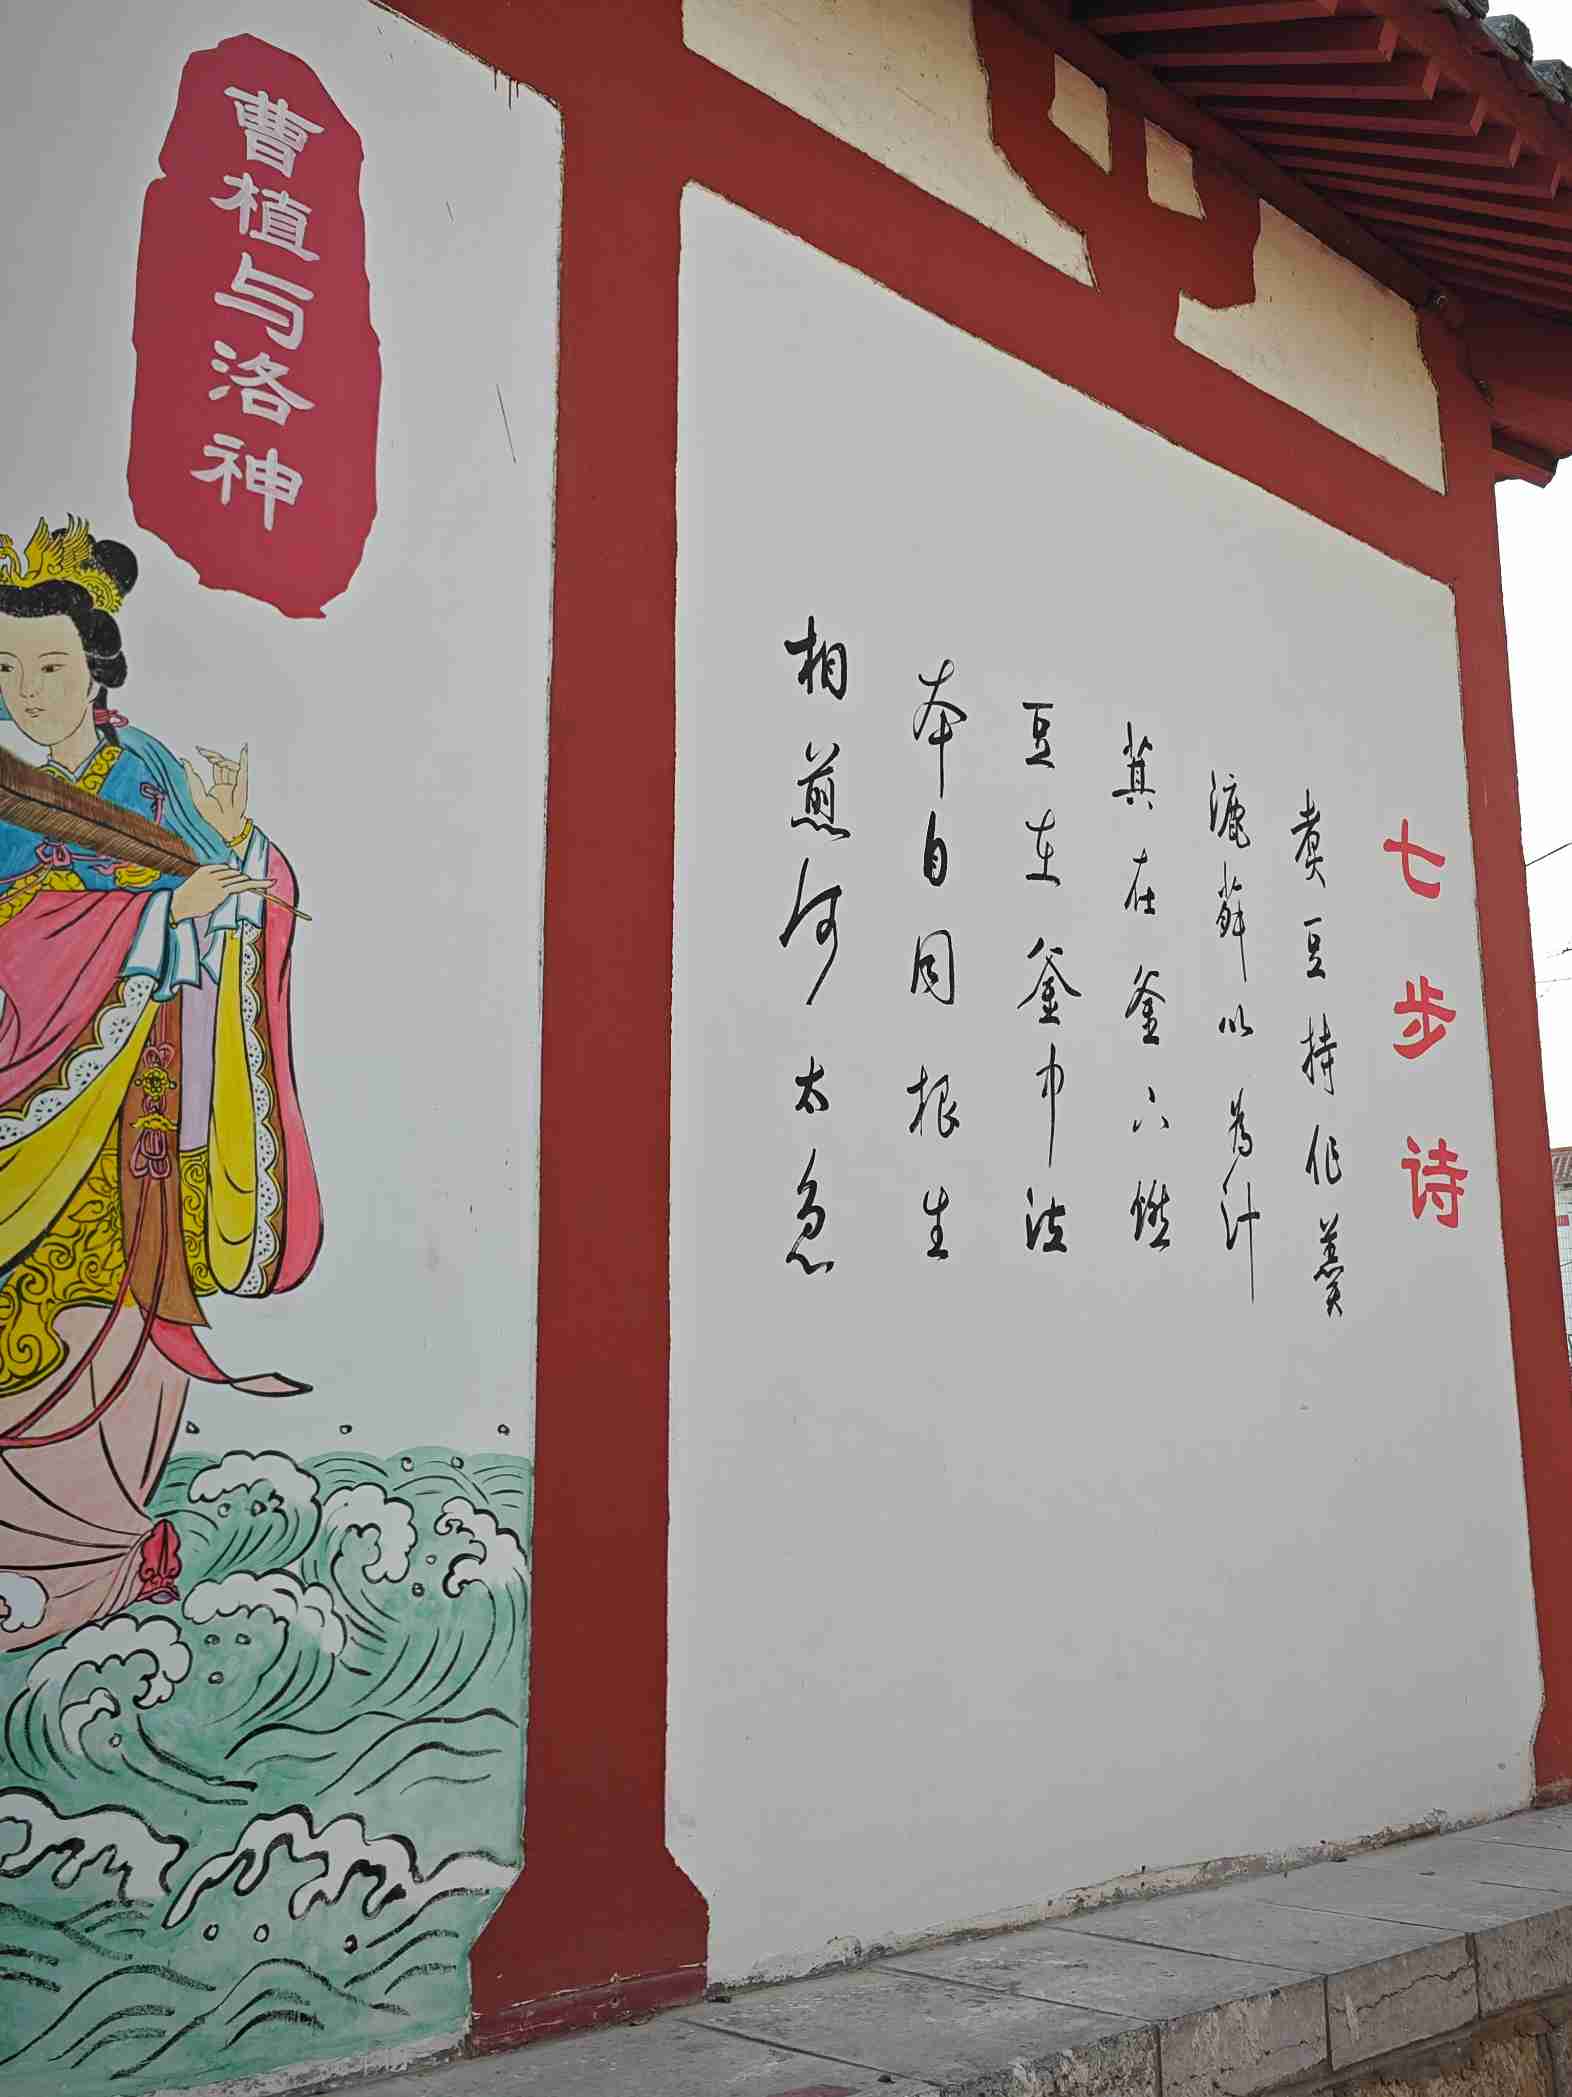 七步诗
煮豆持作羹
漉以為汁
萁在釜下燃
豆在釜中泣
本自同根生
相煎何太急
曹植与洛神